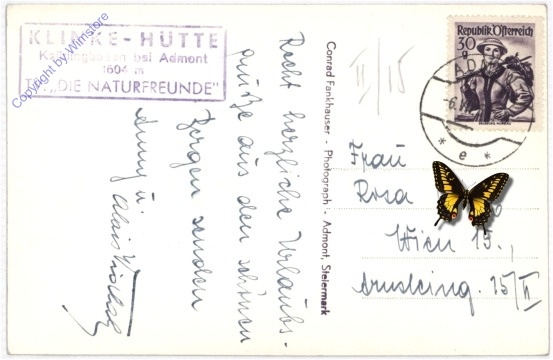 KLINKE-HÜTTE
Kaiblingboden bei Admont
1604 m
T.V. „DIE NATURFREUNDE"
Copyright by Wimstore
Recht herzliche Urlaubs-
grüße aus den schönen
Bergen senden
Anny u.
Alois
Conrad Fankhauser - Photograph - Admont, Steiermark
II/15
Republik Österreich
30
g
AD
6.
* e *
Frau
Rosa
Wien 15.,
15/II